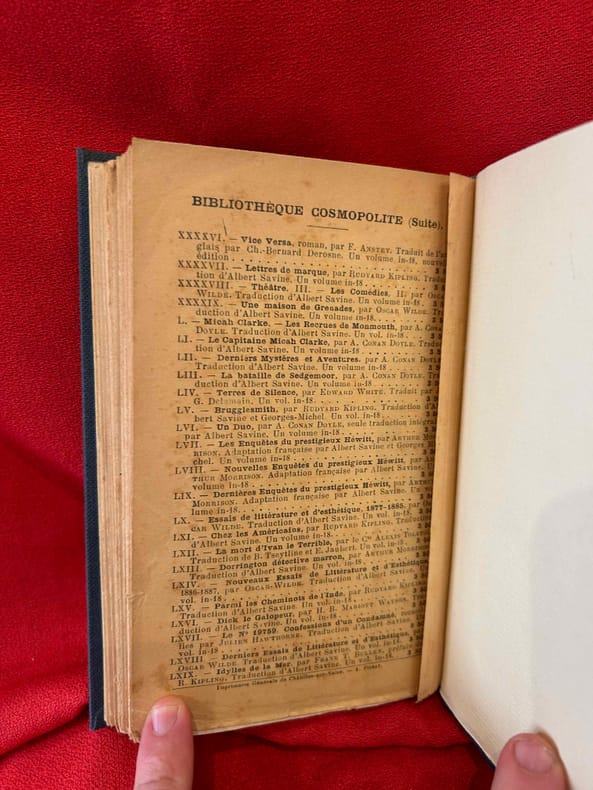 BIBLIOTHÈQUE COSMOPOLITE (Suite).
XXXXVI. — Vice Versa, roman, par F. ANSTEY. Traduit de l'an
glais par Ch.-Bernard Derosne. Un volume in-18, nouvel
édition . . . . . . . . . . 3 5
XXXXVII. — Lettres de marque, par RUDYARD KIPLING. Traduc
tion d'Albert Savine. Un volume in-18. . . . . 3 5
XXXXVIII. — Théâtre. III. — Les Comédies. II. par OSCA
WILDE. Traduction d'Albert Savine. Un volume in-18. 3 5
XXXXIX. — Une maison de Grenades, par OSCAR WILDE. Tra
duction d'Albert Savine. Un volume in-18. . . . 3 5
L. — Micah Clarke. — Les Recrues de Monmouth, par A. CONA
DOYLE. Traduction d'Albert Savine. Un vol. in-18. . . 3 5
LI. — Le Capitaine Micah Clarke, par A. CONAN DOYLE. Traduc
tion d'Albert Savine. Un volume in-18. . . . . 3 5
LII. — Derniers Mystères et Aventures, par A. CONAN DOYL
Traduction d'Albert Savine. Un volume in-18. . . . 3 5
LIII. — La bataille de Sedgemoor, par A. CONAN DOYLE. Tra
duction d'Albert Savine. Un volume in-18. . . . 3 5
LIV. — Terres de Silence, par EDWARD WHITE. Traduit par
G. Delamain. Un vol. in-18. . . . . . 3 5
LV. — Brugglesmith, par RUDYARD KIPLING. Traduction d'Al
bert Savine et Georges-Michel. Un vol. in-18. . . . 3 5
LVI. — Un Duo, par A. CONAN DOYLE, seule traduction intégral
par Albert Savine. Un volume in-18. . . . . 3 5
LVII. — Les Enquêtes du prestigieux Héwitt, par ARTHUR MOR
RISON. Adaptation française par Albert Savine et Georges Mi
chel. Un volume in-18. . . . . . 3 5
LVIII. — Nouvelles Enquêtes du prestigieux Héwitt, par AR
THUR MORRISON. Adaptation française par Albert Savine. Un
volume in-18 . . . . . . . . 3 5
LIX. — Dernières Enquêtes du prestigieux Héwitt, par ARTHU
MORRISON. Adaptation française par Albert Savine. Un vo
lume in-18 . . . . . . . . 3 5
LX. — Essais de littérature et d'esthétique, 1877-1885, par OS
CAR WILDE. Traduction d'Albert Savine. Un vol. in-18. . 3 5
LXI. — Chez les Américains, par RUDYARD KIPLING. Traduction
d'Albert Savine. Un volume in-18. . . . . 3 5
LXII. — La mort d'Ivan le Terrible, par le Cte ALEXIS TOLSTOÏ
Traduction de B. Tseytline et E. Jaubert. Un vol. in-18. . 3 5
LXIII. — Dorrington détective marron, par ARTHUR MORRISON
Traduction d'Albert Savine. Un vol. in-18. . . . 3 5
LXIV. — Nouveaux Essais de Littérature et d'Esthétique,
1886-1887, par OSCAR-WILDE. Traduction d'Albert Savine. Un
vol. in-18. . . . . . . . 3 5
LXV. — Parmi les Cheminots de l'Inde, par RUDYARD KIPLING
Traduction d'Albert Savine. Un vol. in-18. . . . 3 5
LXVI. — Dick le Galopeur, par H. B. MARIOTT WATSON. Tra
duction d'Albert Savine. Un vol. in-18. . . . . 3 5
LXVII. — Le N° 19759. Confessions d'un Condamné,
liées par JULIEN HAWTHORNE. Traduction d'Albert Savine. Un
vol. in-18 . . . . . . . . 3 5
LXVIII — Derniers Essais de Littérature et d'Esthétique, par
OSCAR WILDE Traduction d'Albert Savine. Un vol. in-18. 3 5
LXIX. — Idylles de la Mer, par FRANK T. BULLEN, préface de
R. KIPLING. Traduction d'Albert Savine. Un vol. in-18. . 3 5
Imprimerie Générale de Châtillon-sur-Seine. — A. PICHAT.